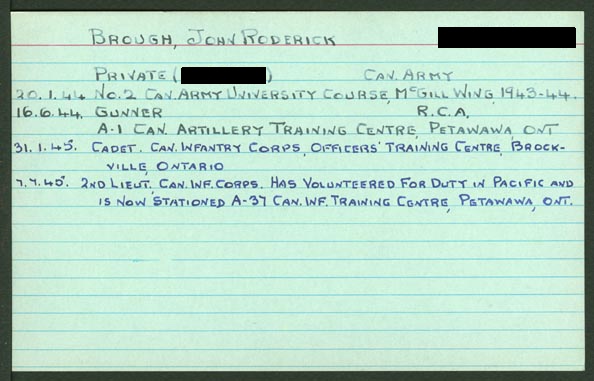 BROUGH, JOHN RODERICK
PRIVATE ( ) CAN. ARMY
20.1.44 NO. 2 CAN. ARMY UNIVERSITY COURSE, MCGILL WING, 1943-44.
16.6.44. GUNNER R.C.A,
A-1 CAN. ARTILLERY TRAINING CENTRE, PETAWAWA, ONT
31.1.45. CADET. CAN. INFANTRY CORPS, OFFICERS' TRAINING CENTRE, BROCK-
VILLE, ONTARIO
7.7.45. 2ND LIEUT, CAN. INF. CORPS. HAS VOLUNTEERED FOR DUTY IN PACIFIC AND
IS NOW STATIONED A-37 CAN. INF. TRAINING CENTRE, PETAWAWA, ONT.